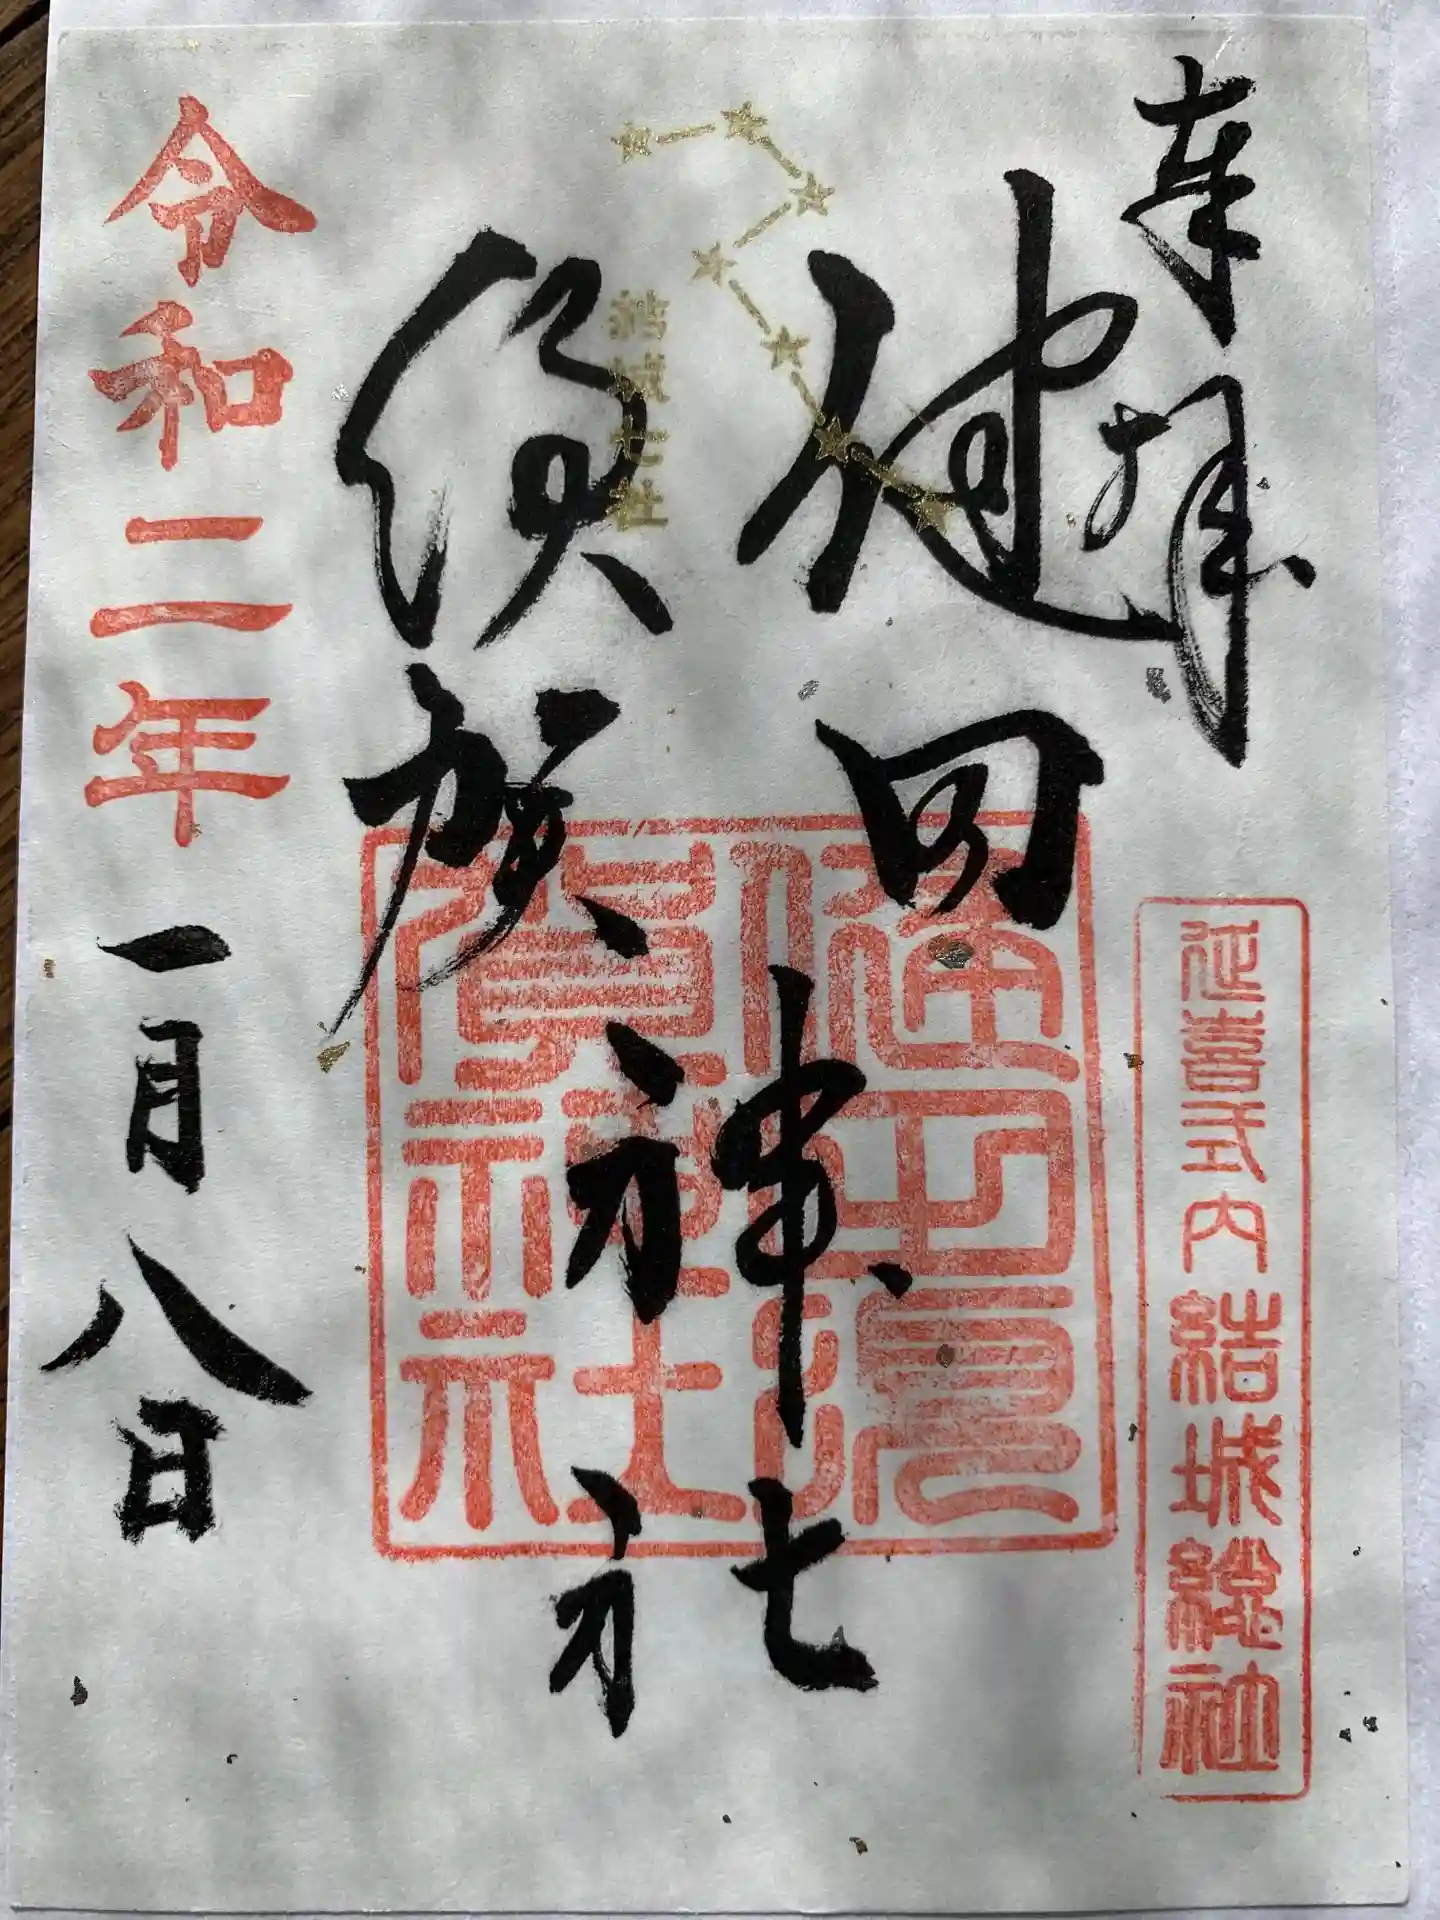 奉拝
延喜式内結城總社
健田
須賀
神社
健田須
賀神社
結城七社
令和二年一月八日